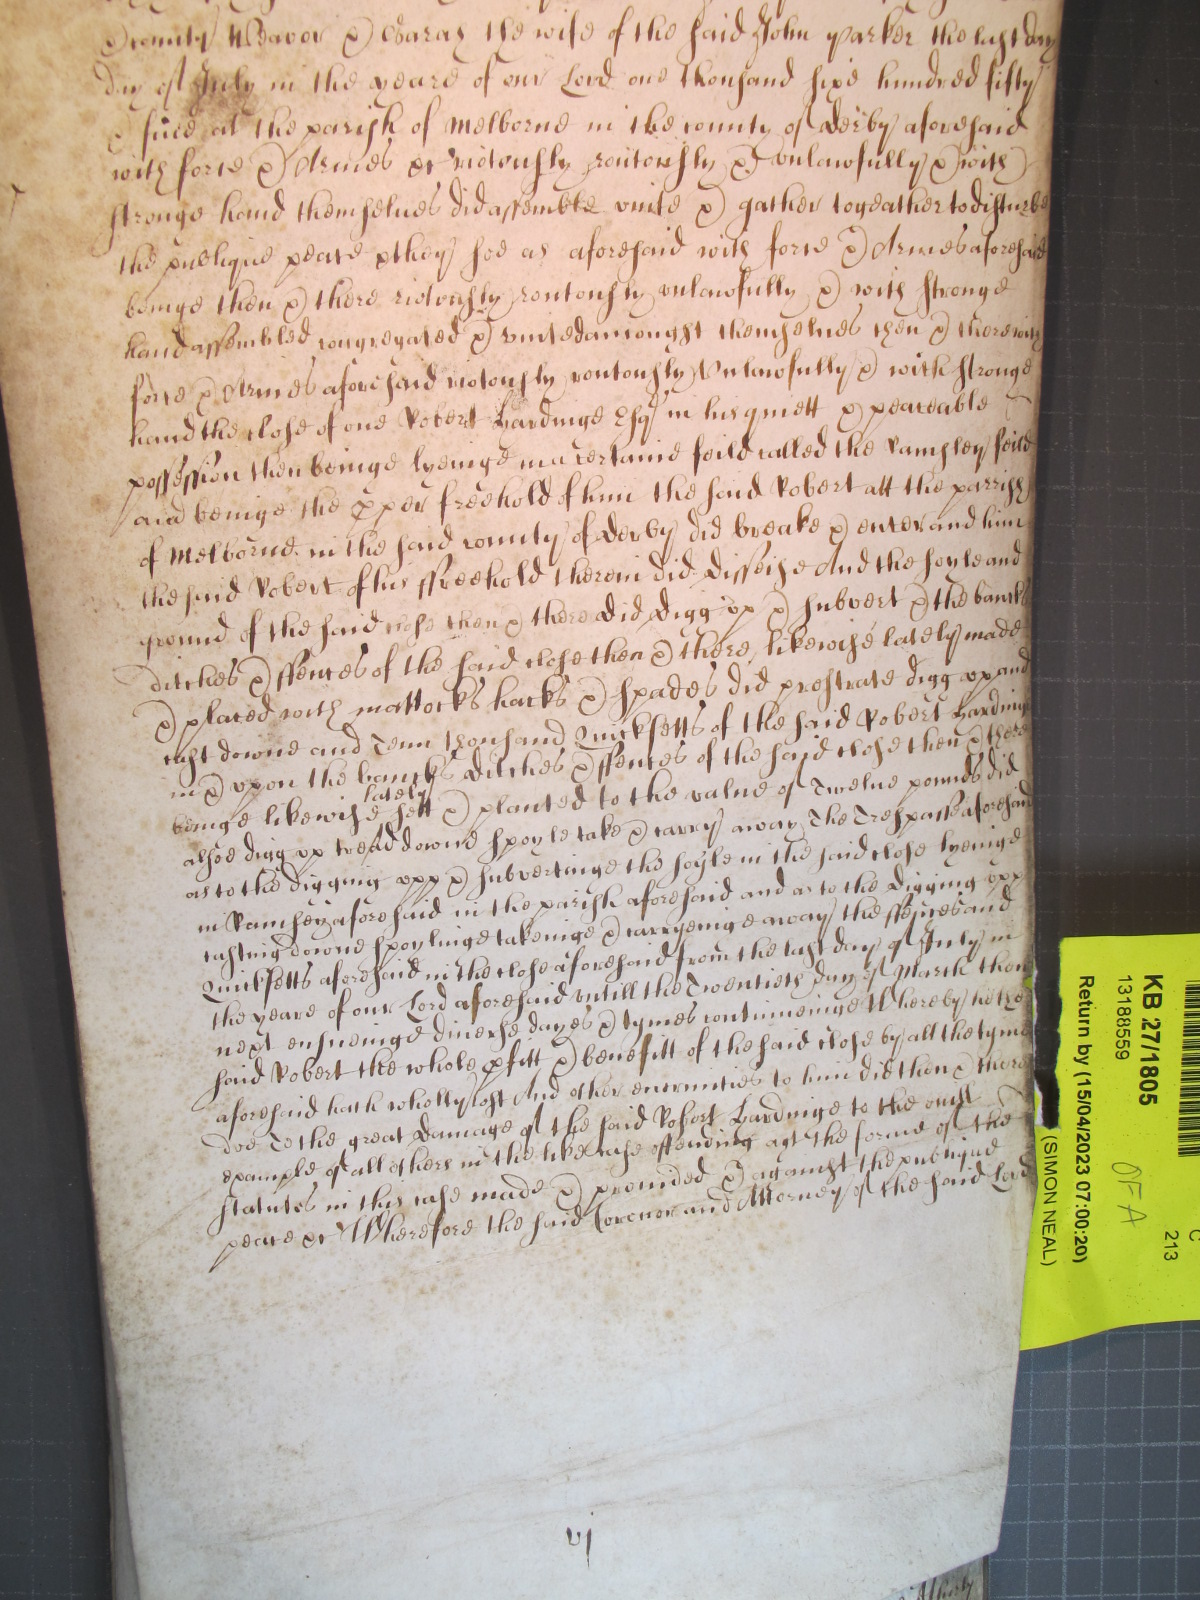 County Weaver & Sarah the wife of the said John Parker the last day
day of July in the yeare of our Lord one thousand sixe hundred fifty
& five at the parish of Melborne in the county of Derby aforesaid
with force & Armes &c riotously routously & unlawfully & with
stronge hand themselves did assemble unite & gather togeather to disturbe
the publique peace & they soe as aforesaid with force & Armes aforesaid
beinge then & there riotously routously unlawfully & with stronge
hand assembled congregated & united amongst themselves then & there with
force & Armes aforesaid riotously routously Unlawfully & with stronge
hand the close of one Robert Hardinge Esqr in his quiett & peaceable
possession then beinge lyeinge in a certaine feild called the Ramsley feild
and beinge the pper freehold of him the said Robert att the parrish
of Melborne in the said county of Derby did breake & enter and him
the said Robert of his ffreehold therein did disseise And the soyle and
ground of the said close then & there did digg up & subvert & the bancks
ditches & ffences of the said close then & there likewise lately made
& placed with mattocks hacks & spades did prostrate digg up and
cast downe and Tenn thousand Quicksetts of the said Robert Hardinge
in & upon the bancks ditches & ffences of the said close then & there
beinge likewise lately sett & planted to the value of Twelve pounds did
alsoe digg up tread downe spoyle take & carry away The Trespasse aforesaid
as to the digging upp & subvertinge the soyle in the said close lyeinge
in Ramsley aforesaid in the parish aforesaid and as to the digging upp
casting downe spoylinge takeinge & carryeinge away the ffences and
Quicksetts aforesaid in the close aforesaid from the last day of July in
the yeare of our Lord aforesaid untill the Twentieth day of March then
next ensueinge diverse dayes & tymes continueinge Whereby hee the
said Robert the whole pfitt & benefitt of the said close by all the tyme
aforesaid hath wholly lost And other enormities to him did then & there
doe To the great damage of the said Robert Hardinge to the evill
example of all others in the like case offending agt the forme of the
statutes in this case made & provided & against the publique
peace &c Wherefore the said Coroner and Attorney of the said Lord
vj
KB 27/1805
13188559
Return by (15/04/2023 07:00:20)
(SIMON NEAL)
OFA
213
C